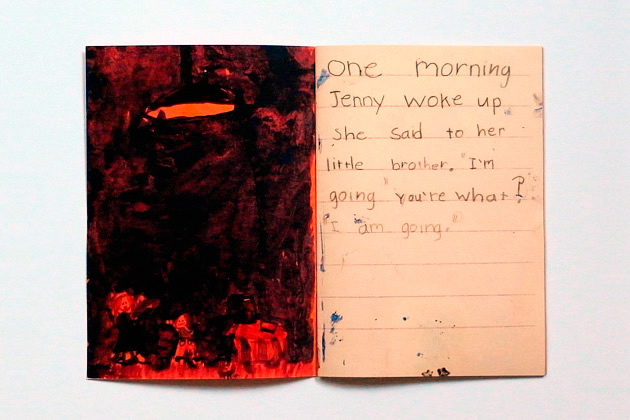 One morning
Jenny woke up
she said to her
little brother. "I'm
going" you're what?
"I am going."